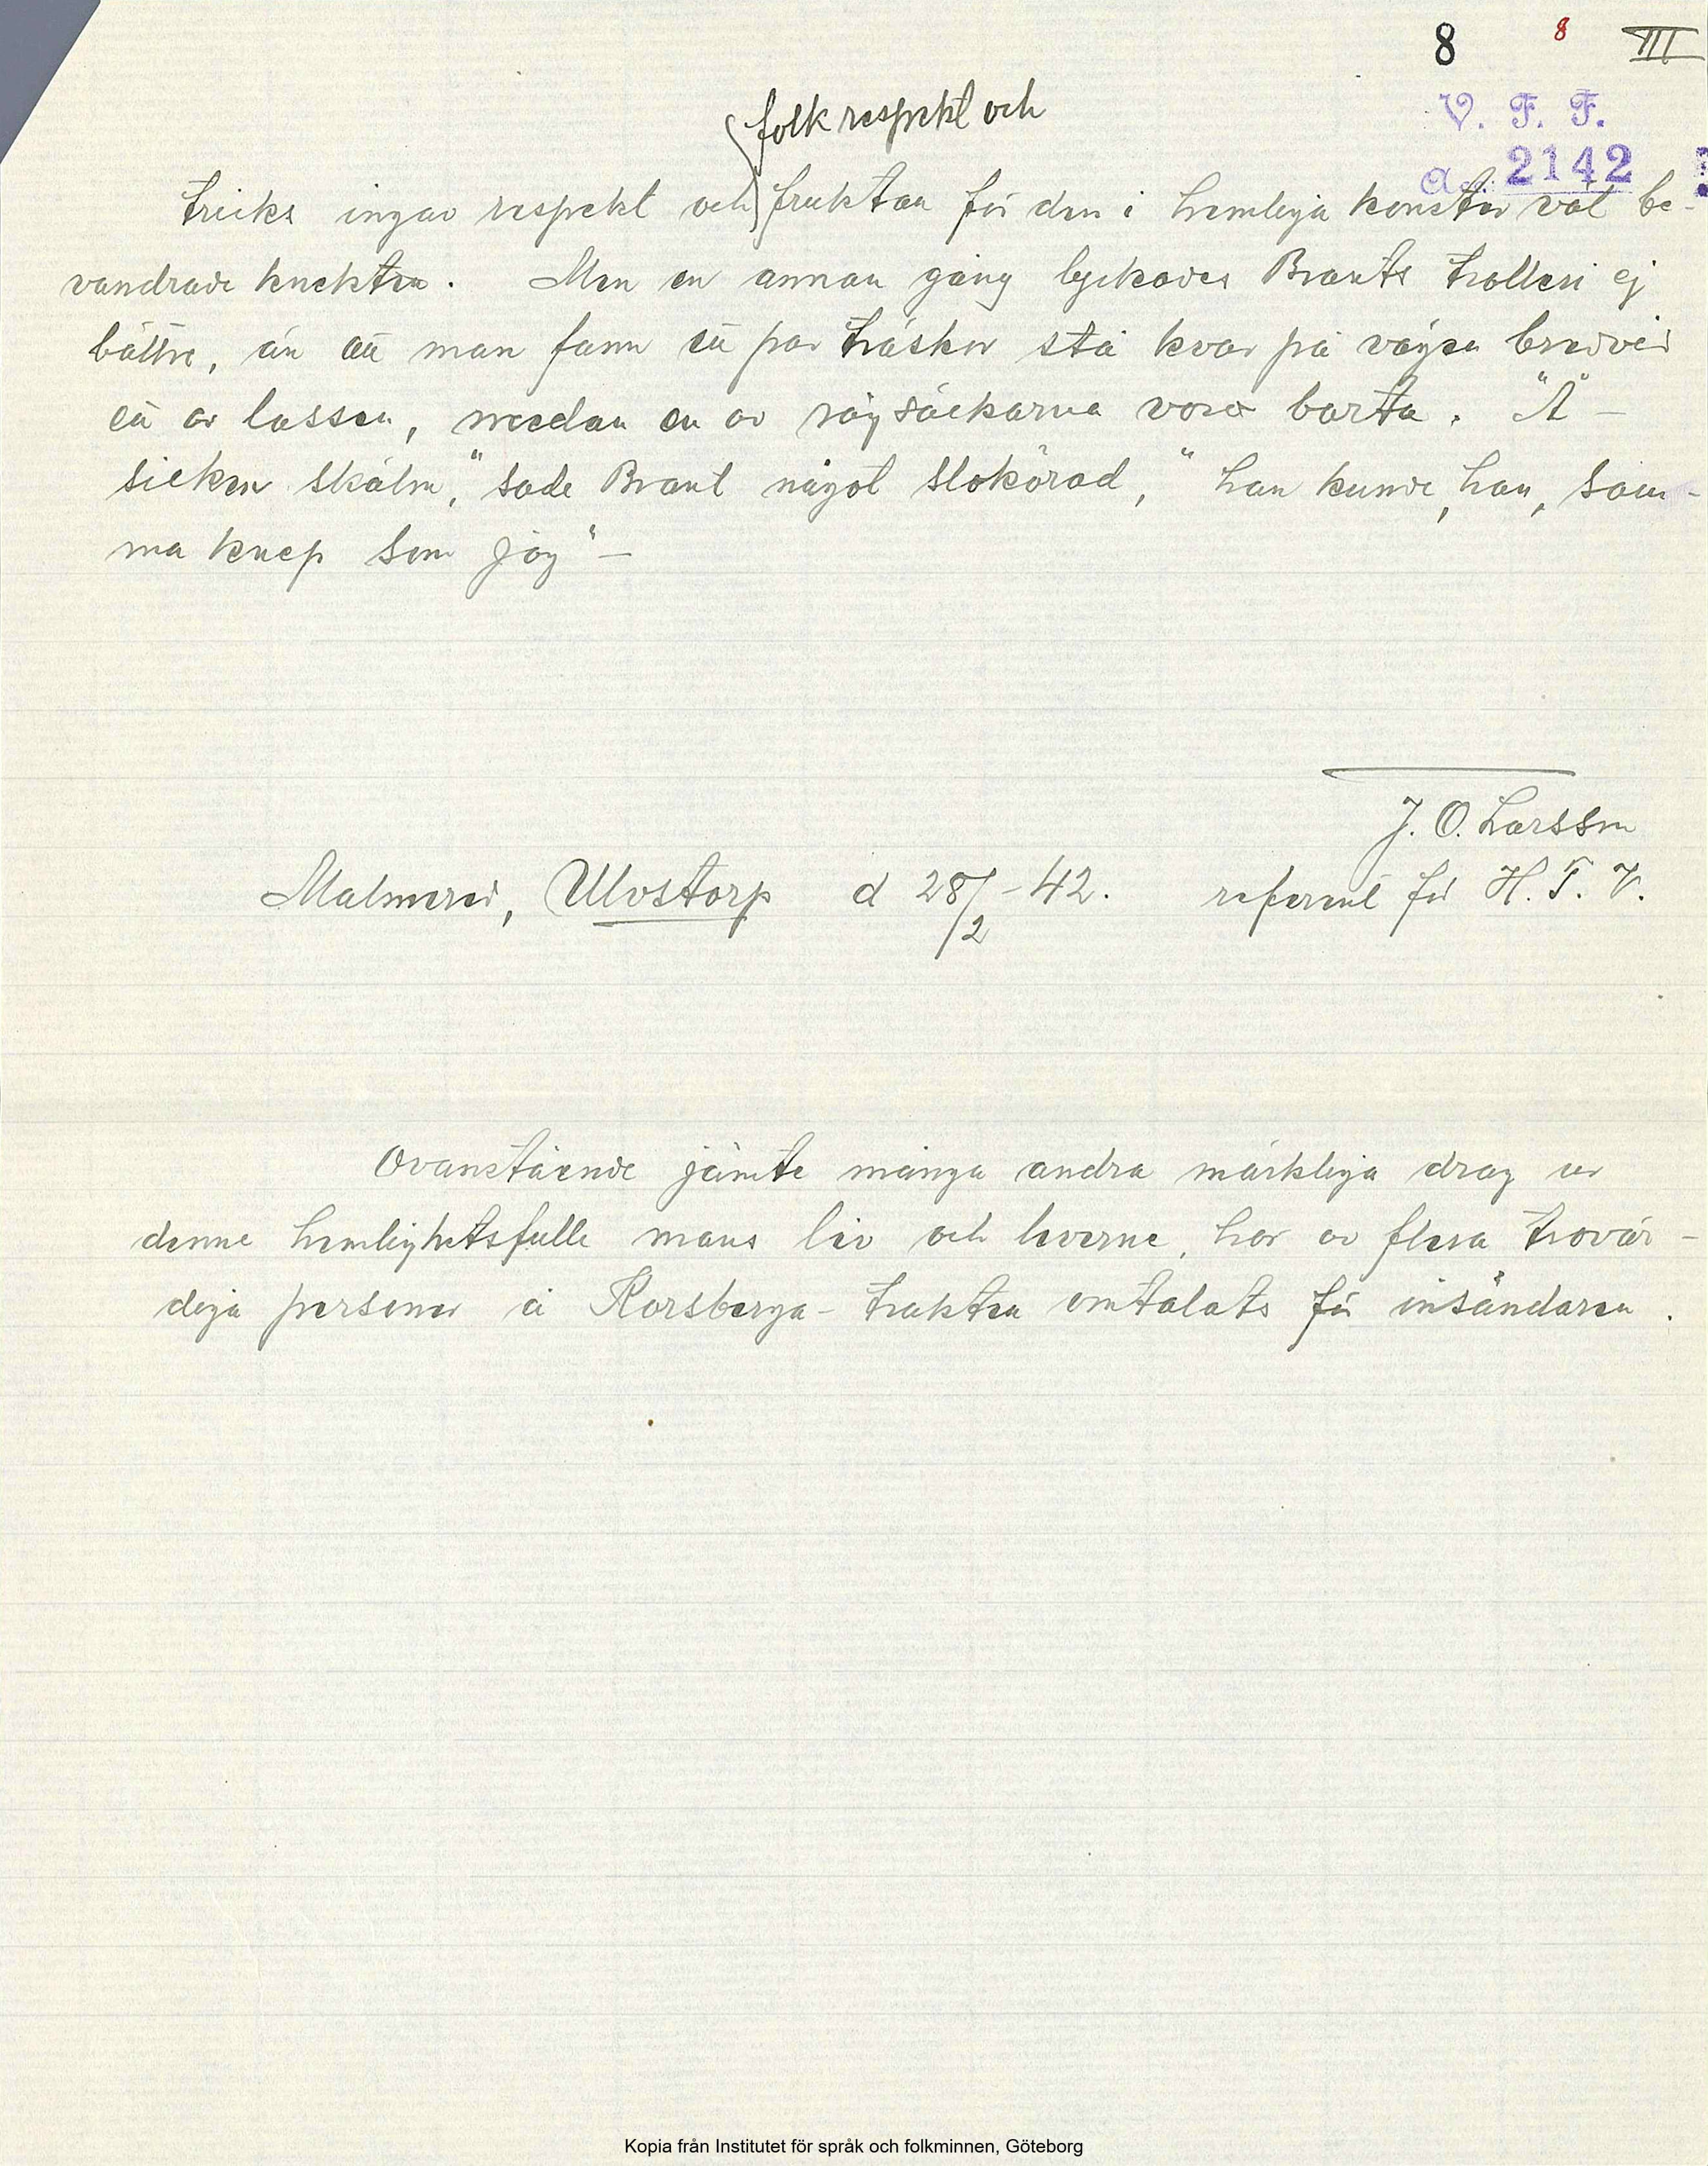 8 8 III
V. F. F.
a. 2142
folk respekt och
tricks ingav respekt och fruktan för den i hemliga konster väl be-
vandrade knekten. Men en annan gång lyckades Brants trolleri ej
bättre, än att man fann ett par träskor stå kvar på vägen bredvid
ett av lassen, medan en av rågsäckarna vore borta. "Å -
sicken skälm," sade Brant något slokörad, "han kunde, han, sam-
ma knep som jag" -
J. O. Larsson
Malmered, Ulvstorp d 28/2 - 42. referent för H. T. V.
Ovanstående jämte många andra märkliga drag ur
denne hemlighetsfulle mans liv och leverne, har av flera trovär-
diga personer i Korsberga-trakten omtalats för insändaren.
Kopia från Institutet för språk och folkminnen, Göteborg